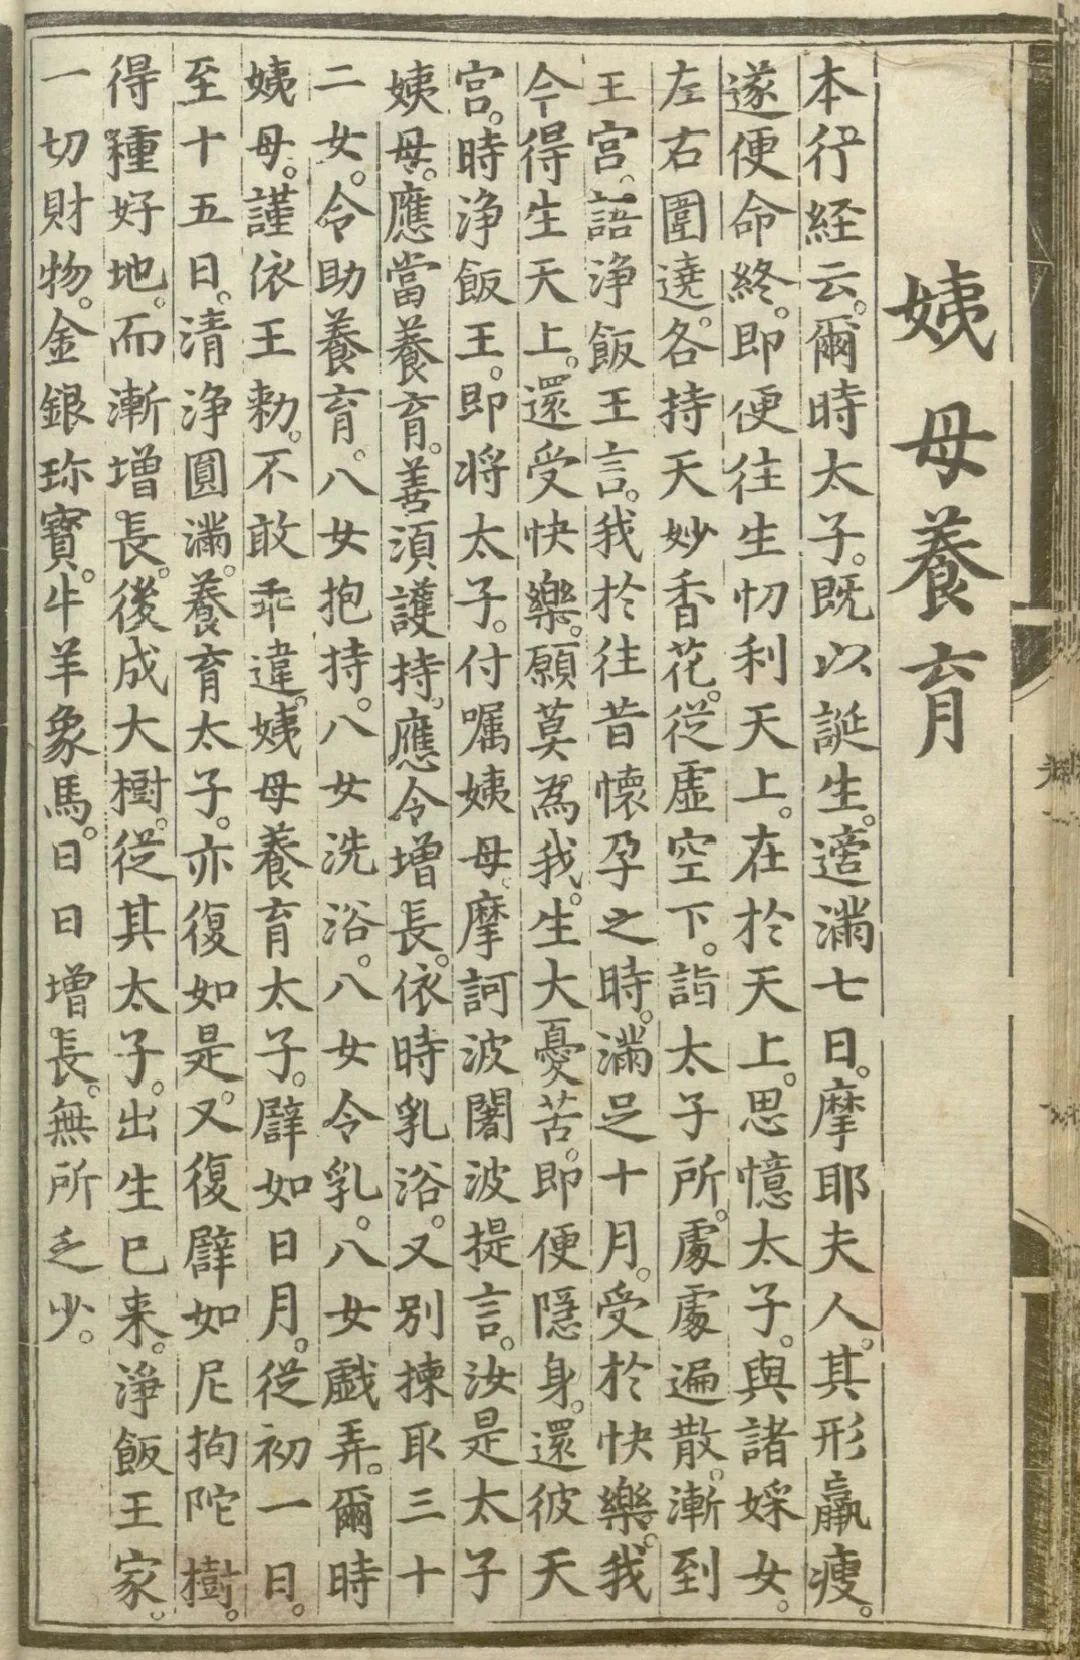 姨母養育
本行経云。爾時太子。既以誕生。適滿七日。摩耶夫人。其形羸瘦。
遂便命終。即便往生忉利天上。在於天上。思憶太子。與諸婇女。
左右圍遶。各持天妙香花。從虛空下。詣太子所。處處遍散。漸到
王宮。語淨飯王言。我於往昔懷孕之時。滿足十月。受於快樂。我
今得生天上。還受快樂。願莫為我。生大憂苦。即便隱身。還彼天
宮。時淨飯王。即將太子。付嘱姨母。摩訶波闍波提言。汝是太子
姨母。應當養育。善須護持。應令增長。依時乳浴。又別揀取三十
二女。令助養育。八女抱持。八女洗浴。八女令乳。八女戲弄。爾時
姨母。謹依王勅。不敢乖違。姨母養育太子。譬如日月。從初一日。
至十五日。清淨圓滿。養育太子。亦復如是。又復譬如尼拘陀樹。
得種好地。而漸增長。後成大樹。從其太子。出生已来。淨飯王家。
一切財物。金銀珎寶。牛羊象馬。日日增長。無所乏少。